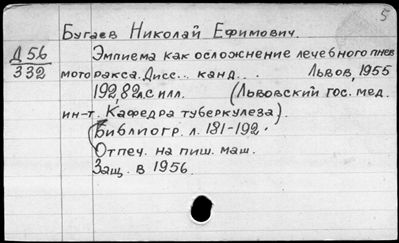 5
Бугаев Николай Ефимович.
Д 56
332
Эмпиема как осложнение лечебного пнев
моторакса. Дисс... канд... Львов, 1955
192, 82 л. с илл. (Львовский гос. мед.
ин-т. Кафедра туберкулеза).
(Библиогр. л. 181-192.
Отпеч. на пиш. маш.
Защ. в 1956.